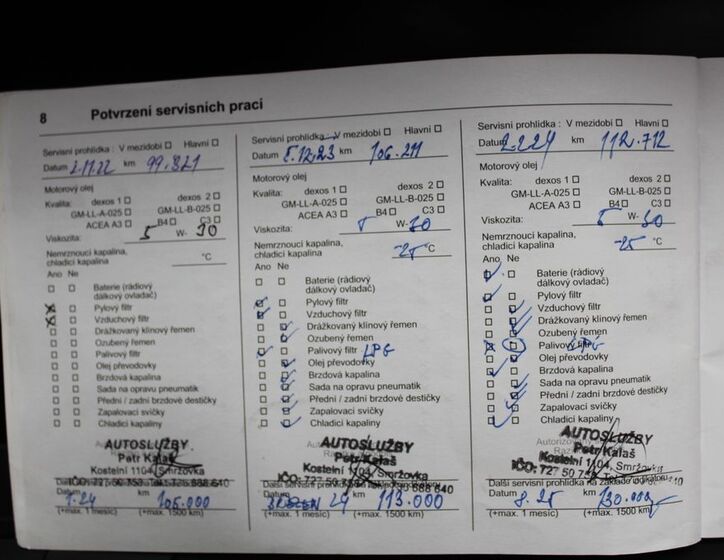 8 Potvrzení servisních prací
Servisní prohlídka : V mezidobí Hlavní
Datum 2.11.22 km 99.821
Motorový olej
Kvalita: dexos 1 dexos 2
GM-LL-A-025 GM-LL-B-025
ACEA A3 B4 C3
Viskozita: 5 W- 30
Nemrznoucí kapalina,
chladicí kapalina °C
Ano Ne
Baterie (rádiový
dálkový ovladač)
Pylový filtr
Vzduchový filtr
Drážkovaný klínový řemen
Ozubený řemen
Palivový filtr
Olej převodovky
Brzdová kapalina
Sada na opravu pneumatik
Přední / zadní brzdové destičky
Zapalovací svíčky
Chladicí kapaliny
AUTOSLUŽBY
Petr Kalaš
Kostelní 1104, Smržovka
Datum km
24 105.000
(+max. 1 měsíc) (+max. 1500 km)
Servisní prohlídka V mezidobí Hlavní
Datum 5.12.23 km 106.211
Motorový olej
Kvalita: dexos 1 dexos 2
GM-LL-A-025 GM-LL-B-025
ACEA A3 B4 C3
Viskozita: 5 W- 30
Nemrznoucí kapalina,
chladicí kapalina -25 °C
Ano Ne
Baterie (rádiový
dálkový ovladač)
Pylový filtr
Vzduchový filtr
Drážkovaný klínový řemen
Ozubený řemen
Palivový filtr LPG
Olej převodovky
Brzdová kapalina
Sada na opravu pneumatik
Přední / zadní brzdové destičky
Zapalovací svíčky
Chladicí kapaliny
AUTOSLUŽBY
Petr Kalaš
Kostelní 1104, Smržovka
Datum km
24 113.000
(+max. 1 měsíc) (+max. 1500 km)
Servisní prohlídka : V mezidobí Hlavní
Datum km 112.712
Motorový olej
Kvalita: dexos 1 dexos 2
GM-LL-A-025 GM-LL-B-025
ACEA A3 B4 C3
Viskozita: 5 W- 30
Nemrznoucí kapalina,
chladicí kapalina -25 °C
Ano Ne
Baterie (rádiový
dálkový ovladač)
Pylový filtr
Vzduchový filtr
Drážkovaný klínový řemen
Ozubený řemen
Palivový filtr LPG
Olej převodovky
Brzdová kapalina
Sada na opravu pneumatik
Přední / zadní brzdové destičky
Zapalovací svíčky
Chladicí kapaliny
AUTOSLUŽBY
Petr Kalaš
Kostelní 1104, Smržovka
Další servisní prohlídka na základě
Datum km
25 130.000
(+max. 1 měsíc) (+max. 1500 km)